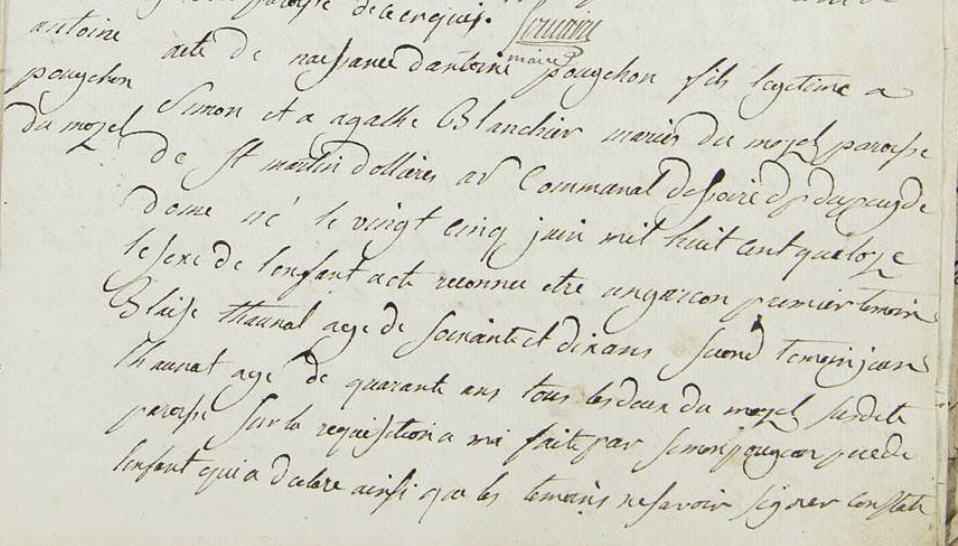 paroisse de cerquis.
maire
antoine
pougchon
du mozel
acte de naissance d'antoine pougchon fils legitime a
Simon et a agathe Blanchier mariés du mozel paroisse
de St martin dollières ar Communal de dp du puy de
Dome né le vingt cinq juin mil huit cent quatoze
le sexe de l'enfant a ete reconnu etre un garcon premier temoin
Blaise thaunat age de soixante et dix ans second temoin jean
thaunat age de quarante ans tous les deux du mozel susdite
paroisse sur la requisition a moi faite par simon pougcon pere de
l'enfant qui a declare ainsi que les temoins ne savoir signer constate